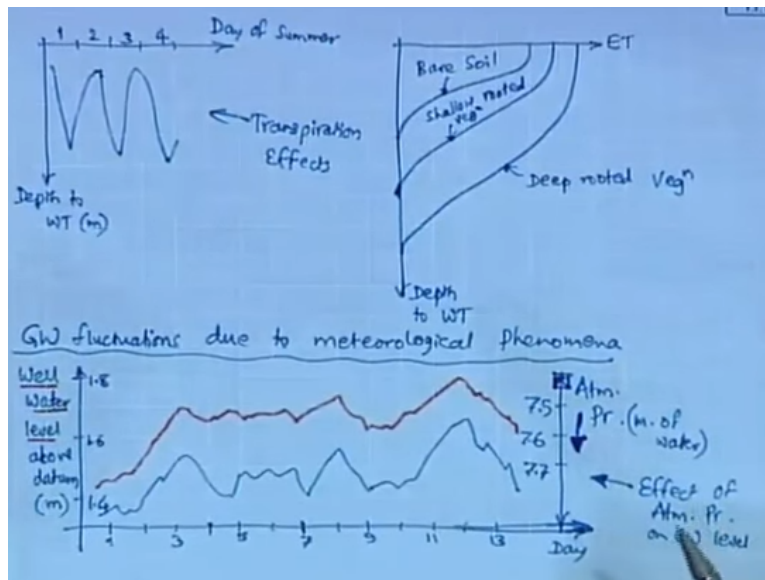 1 2 3 4
Day of Summer
Transpiration
Effects
Depth to
WT (m)
ET
Bare Soil
Shallow rooted
vegⁿ
Deep rooted Vegⁿ
Depth
to WT
GW fluctuations due to meteorological phenomena
Well
water
level
above
datum
(m)
1.8
1.6
1.4
1 3 5 7 9 11 13
Day
7.5
7.6
7.7
Atm.
Pr. (m. of
water)
Effect of
Atm. Pr.
on GW level